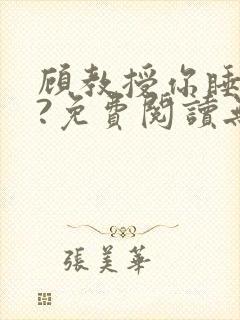 顧教授你睡
?免費閱讀
張美華